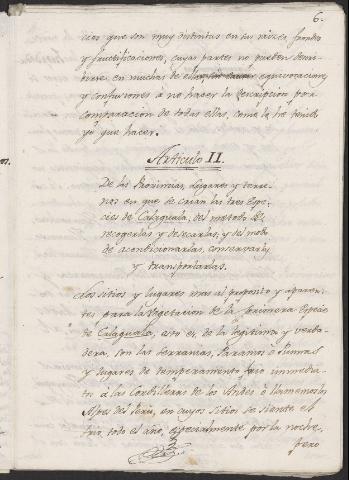 6.
cies que son muy distintas en su raiz, frondes
y fructificaciones, cuyas partes no pueden descri-
virse en muchas de ellas sin causar equivocaciones,
y confusiones à no hacer la descripcion por
comparacion de todas ellas, como la he tenido
yo que hacer.
Articulo II.
De las Provincias, Lugares y terre-
nos en que se crian las tres Espe-
cies de Calaguala; del metodo de
recogerlas y desecarlas; y del modo
de acondicionarlas, conservarlas
y transportarlas.
Los sitios y lugares mas al proposito y aparen-
tes para la vegetacion de la primera Especie
de Calaguala, esto es, de la legitima y verda-
dera, son las serranias, Paramos ò Punas
y lugares de temperamento frio inmedia-
tos à las Cordilleras de los Andes ò llamemoslos
Alpes del Perú, en cuyos sitios se siente el
frio todo el año, especialmente por la noche,
pero